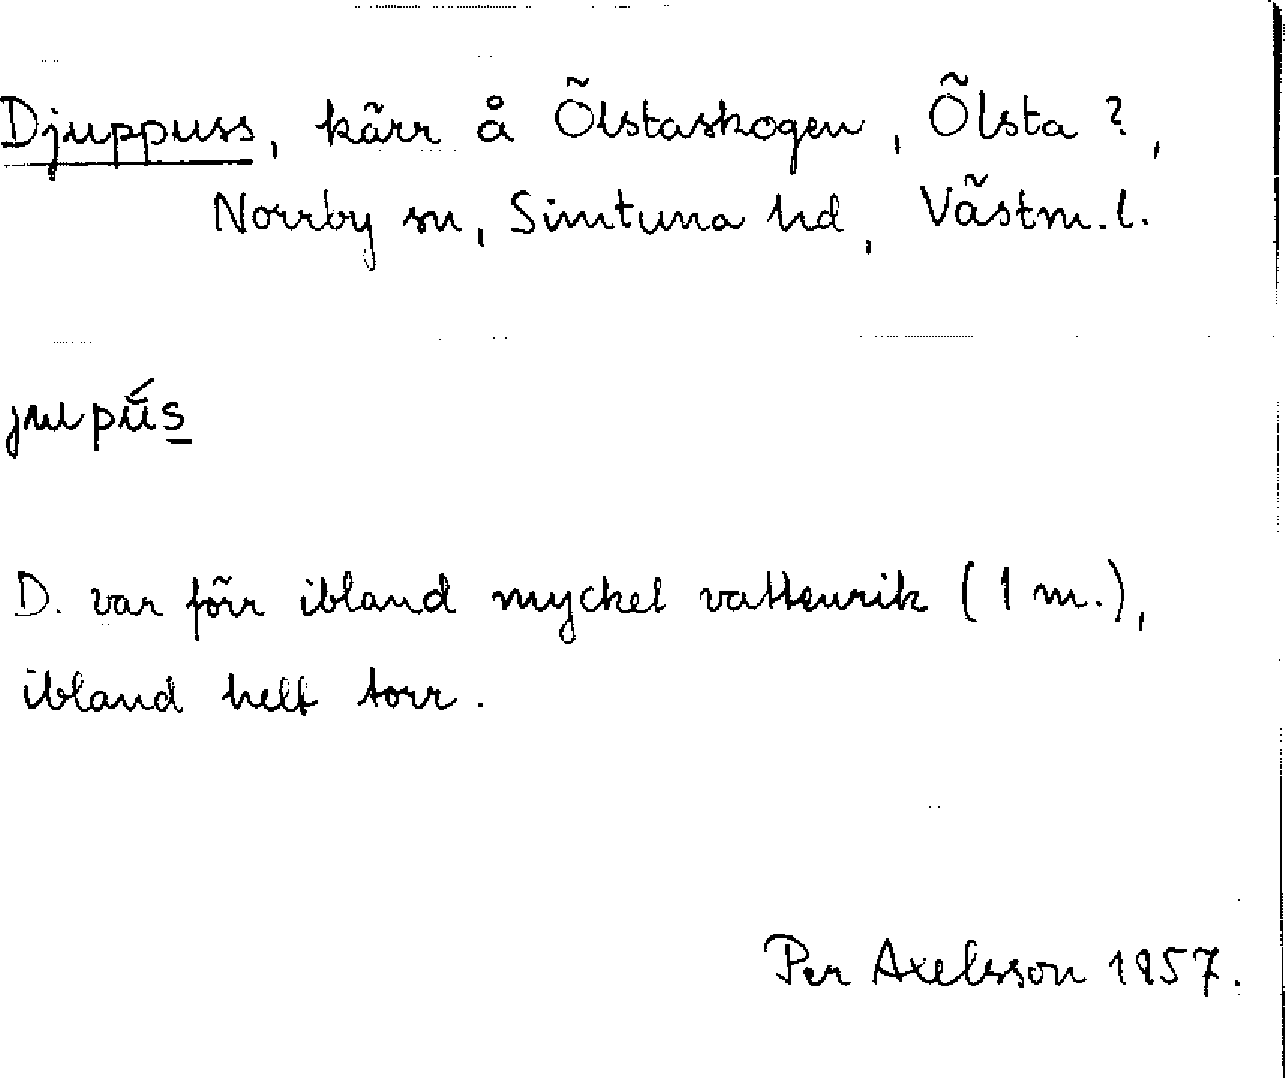 Djuppuss, kärr å Ölstaskogen, Ölsta?,
Norrby sn, Simtuna hd, Västm. l.
julpǘs
D. var förr ibland mycket vattenrik (1 m.),
ibland helt torr.
Per Axelsson 1957.